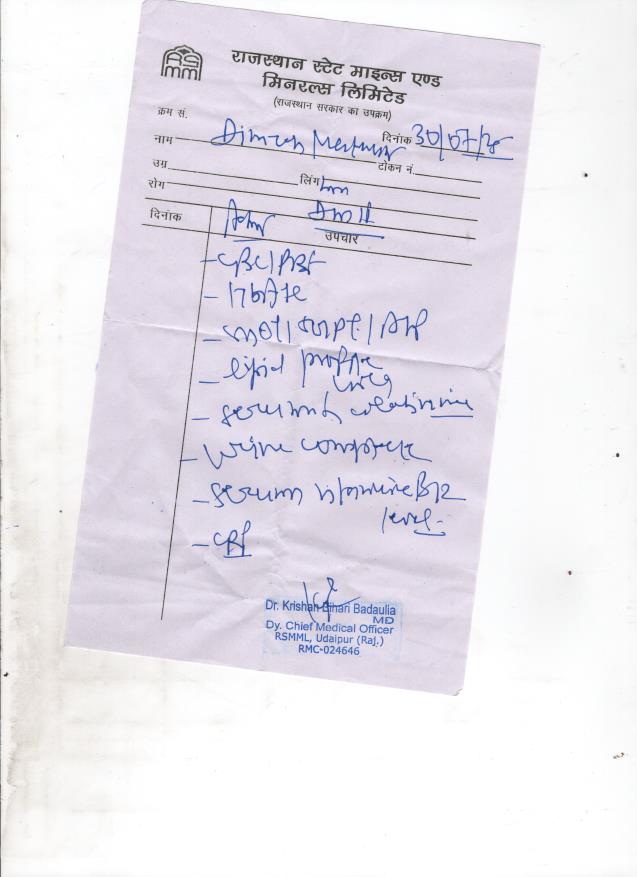 RSMM
राजस्थान स्टेट माइन्स एण्ड
मिनरल्स लिमिटेड
(राजस्थान सरकार का उपक्रम)
क्रम सं.
दिनांक 30/07/
नाम
टोकन नं.
उम्र लिंग
रोग
दिनांक उपचार
- CBC/PBF
- HbA1c
- SGOT/SGPT/ALP
- lipid profile
urea
- serum creatinine
- urine complete
- serum vitamine B12
level
Dr. Krishan Bihari Badaulia
MD
Dy. Chief Medical Officer
RSMML, Udaipur (Raj.)
RMC-024646